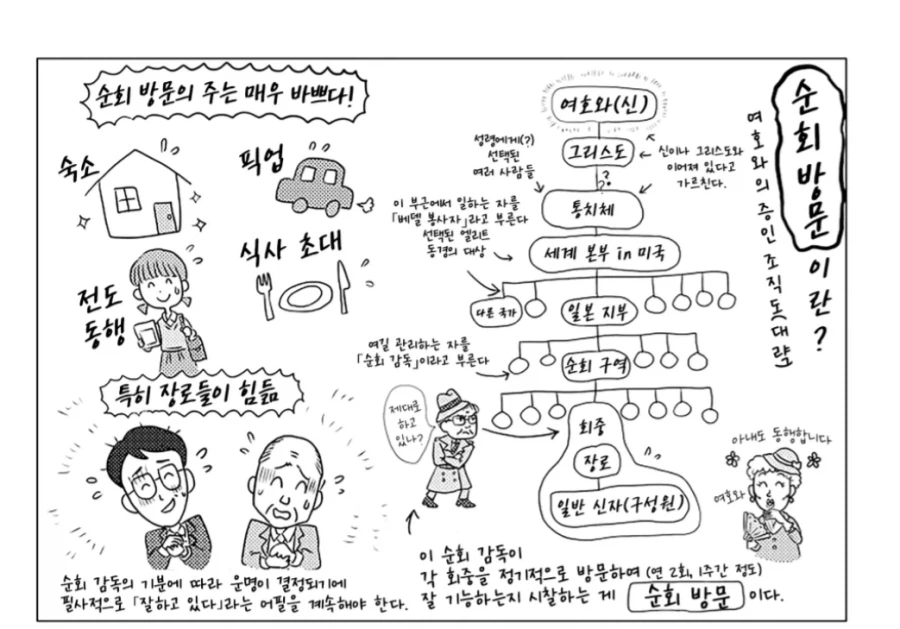 순회 방문이란?
여호와의 증인 조직도(대략)
여호와(신)
그리스도
신이나 그리스도와
이어져 있다고
가르친다.
성령에게(?)
선택된
여러 사람들
??
통치체
이 부근에서 일하는 자를
「베델 봉사자」라고 부른다
선택된 엘리트
동경의 대상
세계 본부 in 미국
다른 국가
일본 지부
여길 관리하는 자를
「순회 감독」이라고 부른다
순회 구역
제대로
하고
있나?
회중
장로
일반 신자(구성원)
아내도 동행합니다
여호와
이 순회 감독이
각 회중을 정기적으로 방문하여 (연 2회, 1주간 정도)
잘 기능하는지 시찰하는 게 순회 방문 이다.
순회 방문의 주는 매우 바쁘다!
숙소
픽업
식사 초대
전도
동행
특히 장로들이 힘듦
순회 감독의 기분에 따라 운명이 결정되기에
필사적으로 「잘하고 있다」라는 어필을 계속해야 한다.